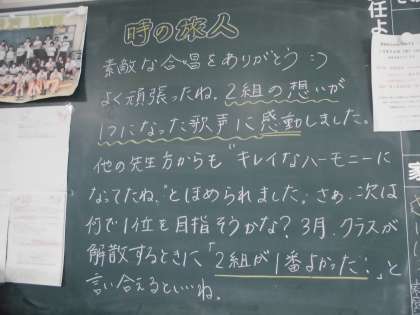 時の旅人
素敵な合唱をありがとう :)
よく頑張ったね。2組の想いが
1つになった歌声に感動しました。
他の先生方からも"キレイなハーモニーに
なってたね。"とほめられました。さぁ、次は
何で1位を目指そうかな？3月、クラスが
解散するときに「2組が1番よかった:)」と
言い合えるといいね。